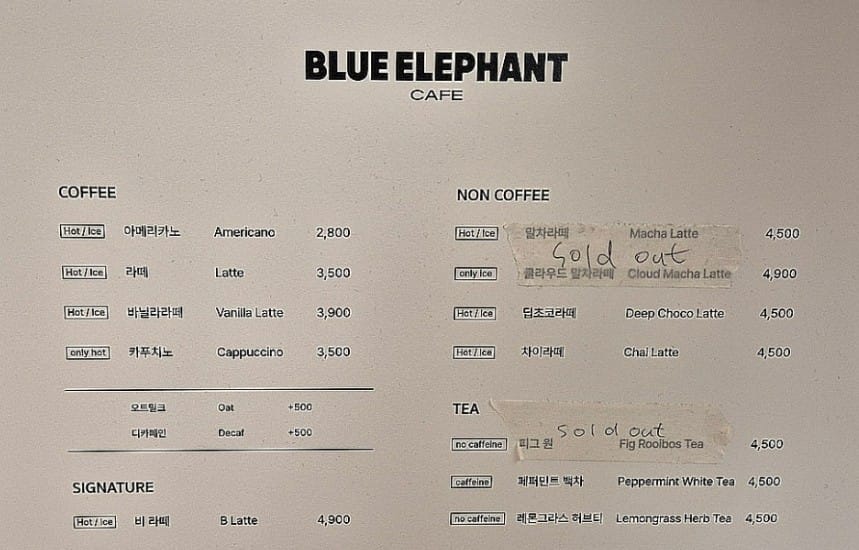 BLUE ELEPHANT
CAFE
COFFEE
Hot / Ice 아메리카노 Americano 2,800
Hot / Ice 라떼 Latte 3,500
Hot / Ice 바닐라라떼 Vanilla Latte 3,900
only hot 카푸치노 Cappuccino 3,500
오트밀크 Oat +500
디카페인 Decaf +500
SIGNATURE
Hot / Ice 비 라떼 B Latte 4,900
NON COFFEE
Hot / Ice 말차라떼 Macha Latte 4,500
Sold out
only Ice 클라우드 말차라떼 Cloud Macha Latte 4,900
Hot / Ice 딥초코라떼 Deep Choco Latte 4,500
Hot / Ice 차이라떼 Chai Latte 4,500
TEA
Sold out
no caffeine 피그 원 Fig Rooibos Tea 4,500
caffeine 페퍼민트 백차 Peppermint White Tea 4,500
no caffeine 레몬그라스 허브티 Lemongrass Herb Tea 4,500